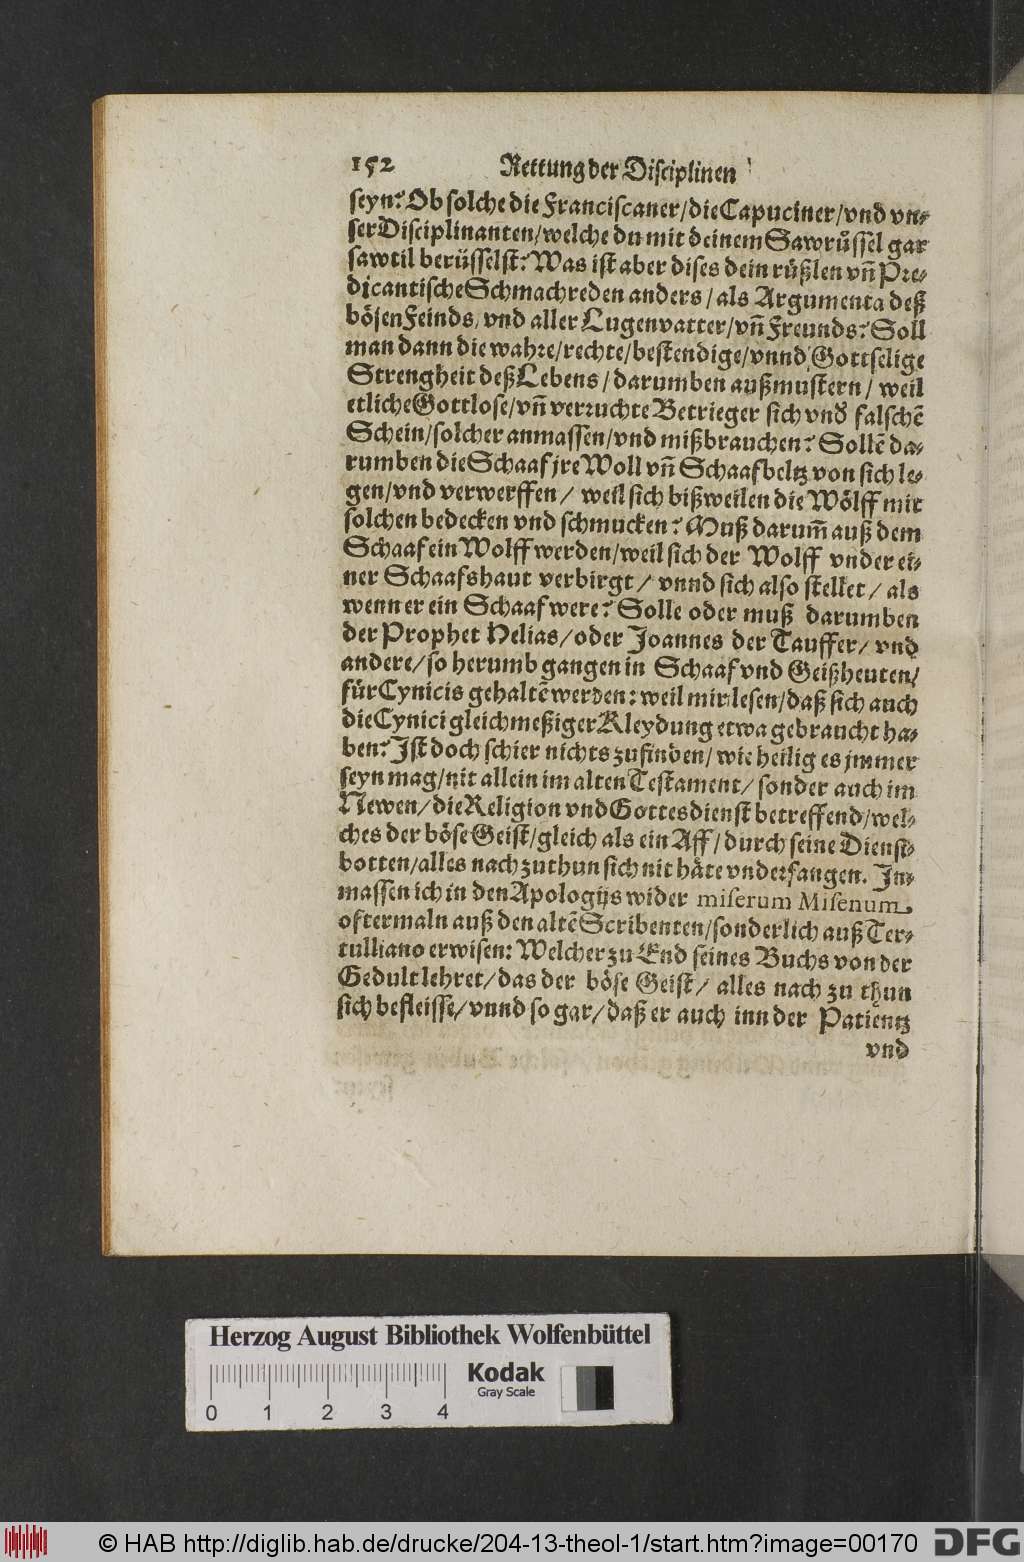 152 Rettung der Disciplinen
seyn? Ob solche die Franciscaner/ die Capuciner/ vnd vn-
ser Disciplinanten/ welche du mit deinem Sawrüssel gar
sawtil berüsselst? Was ist aber dises dein rüßlen vñ Pre-
dicantische Schmachreden anders/ als Argumenta deß
bösen Feinds/ vnd aller Lugenvatter/ vñ Freunds? Soll
man dann die wahre/ rechte/ bestendige/ vnnd Gottselige
Strengheit deß Lebens/ darumben außmustern/ weil
etliche Gottlose/ vñ verruchte Betrieger sich vnd falschē
Schein/ solcher anmassen/ vnd mißbrauchen? Sollē da-
rumben die Schaaf jre Woll vñ Schaafbeltz von sich le-
gen/ vnd verwerffen/ weil sich bißweilen die Wölff mit
solchen bedecken vnd schmucken? Muß darum̄ auß dem
Schaaf ein Wolff werden/ weil sich der Wolff vnder ei-
ner Schaafshaut verbirgt/ vnnd sich also stellet/ als
wenn er ein Schaaf were? Solle oder muß darumben
der Prophet Helias/ oder Joannes der Tauffer/ vnd
andere/ so herumb gangen in Schaaf vnd Geißheuten/
für Cynicis gehaltē werden: weil mir lesen/ daß sich auch
die Cynici gleichmeßiger Kleydung etwa gebraucht ha-
ben? Jst doch schier nichts zufinden/ wie heilig es jmmer
seyn mag/ nit allein im alten Testament/ sonder auch im
Newen/ die Religion vnd Gottesdienst betreffend/ wel-
ches der böse Geist/ gleich als ein Aff/ durch seine Dienst-
botten/ alles nach zuthun sich nit häte vnderfangen. Jn-
massen ich in den Apologijs wider miserum Misenum
oftermaln auß den altē Scribenten/ sonderlich auß Ter-
tulliano erwisen: Welcher zu End seines Buchs von der
Gedult lehret/ das der böse Geist/ alles nach zu thun
sich befleisse/ vnnd so gar/ daß er auch inn der Patientz
vnd
Herzog August Bibliothek Wolfenbüttel
Kodak
Gray Scale
0 1 2 3 4
© HAB http://diglib.hab.de/drucke/204-13-theol-1/start.htm?image=00170 DFG